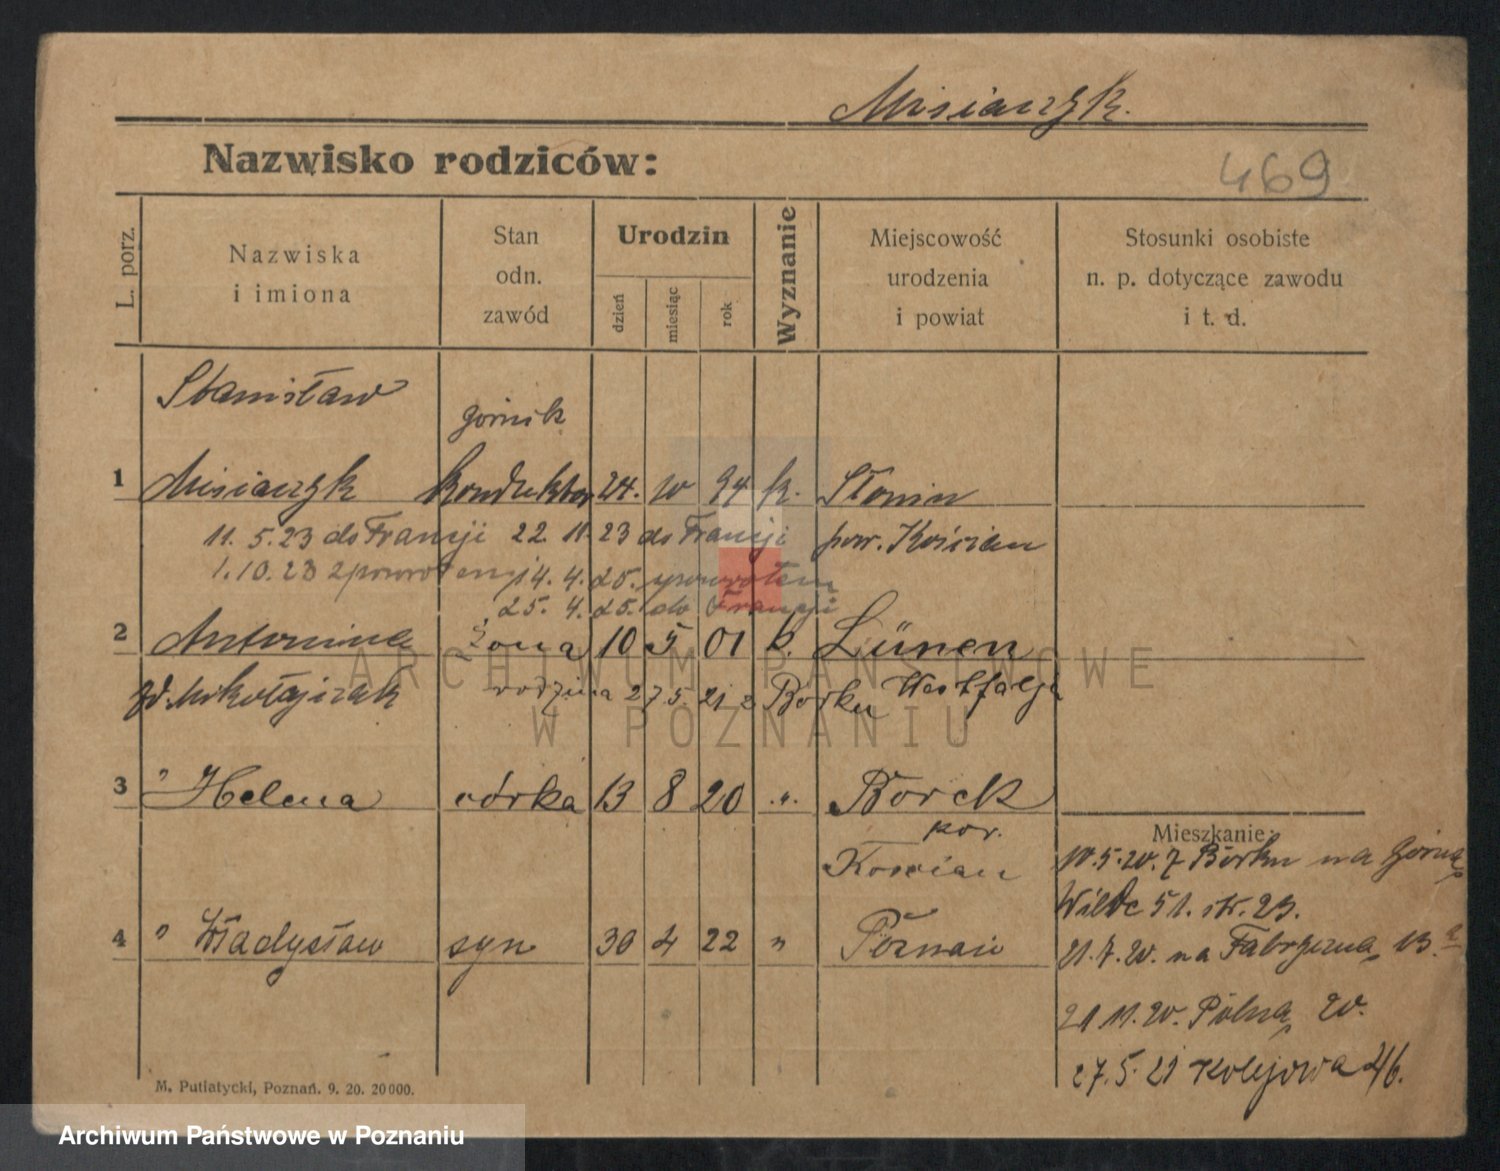 Misiaczyk.
Nazwisko rodziców:
469
L. porz.
Nazwiska
i imiona
Stan
odn.
zawód
Urodzin
dzień
miesiąc
rok
Wyznanie
Miejscowość
urodzenia
i powiat
Stosunki osobiste
n. p. dotyczące zawodu
i t. d.
Stanisław
górnik
1 Misiaczyk konduktor 24. 10 94 k. Słonin
11. 5. 23 do Francji 22. 11. 23 do Francji pow. Kościan
1. 10. 23 z powrotem 14. 4. 25. z powrotem
25. 4. 25. do Francji
2 Antonina żona 10 5 01 k. Lünen
zd. Mikołajczak rodzina 27 5. 21 z Borku Westfalja
3 " Helena córka 13 8 20 .". Borek
pow.
Kościan
Mieszkanie:
10. 5. 20. z Borku na Górną
Wildę 51. str. 23.
4 " Władysław syn 30 4 22 " Poznań
21. 7. 20. na Fabryczną 13. a
21 11. 20. Polną 20.
27. 5. 21 Kolejowa 46.
M. Putiatycki, Poznań. 9. 20. 20000.
ARCHIWUM PAŃSTWOWE
W POZNANIU
Archiwum Państwowe w Poznaniu